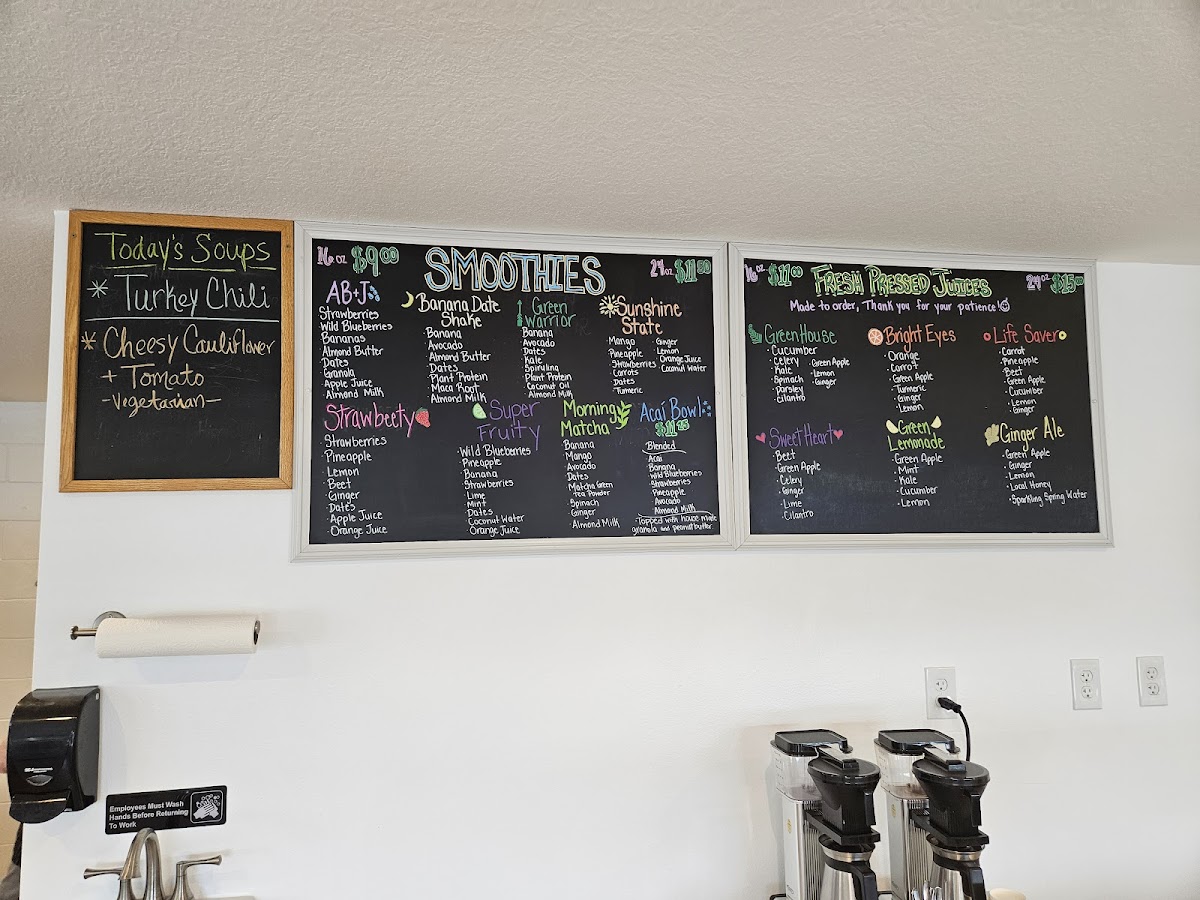 Today's Soups
* Turkey Chili
* Cheesy Cauliflower
+ Tomato
-Vegetarian-
16oz $9.00
SMOOTHIES
24oz $11.00
AB+J
Strawberries
Wild Blueberries
Bananas
Almond Butter
Dates
Granola
Apple Juice
Almond Milk
Banana Date
Shake
Banana
Avocado
Almond Butter
Dates
Plant Protein
Maca Root
Almond Milk
Green
Warrior
Banana
Avocado
Dates
Kale
Spirulina
Plant Protein
Coconut Oil
Almond Milk
Sunshine
State
Mango
Pineapple
Strawberries
Carrots
Dates
Tumeric
Ginger
Lemon
Orange Juice
Coconut Water
Strawbeety
Strawberries
Pineapple
Lemon
Beet
Ginger
Dates
Apple Juice
Orange Juice
Super
Fruity
Wild Blueberries
Pineapple
Banana
Strawberries
Lime
Mint
Dates
Coconut Water
Orange Juice
Morning
Matcha
Banana
Mango
Avocado
Dates
Matcha Green
Tea Powder
Spinach
Ginger
Almond Milk
Acai Bowl
Blended
Acai
Banana
Wild Blueberries
Strawberries
Pineapple
Avocado
Almond Milk
Topped with house made
granola and peanut butter.
16oz $11.00
FRESH PRESSED JUICES
24oz $15.00
Made to order, Thank you for your patience!
GreenHouse
Cucumber
Celery
Kale
Spinach
Parsley
Cilantro
Green Apple
Lemon
Ginger
Bright Eyes
Orange
Carrot
Green Apple
Tumeric
Ginger
Lemon
Life Saver
Carrot
Pineapple
Beet
Green Apple
Cucumber
Lemon
Ginger
SweetHeart
Beet
Green Apple
Celery
Ginger
Lime
Cilantro
Green
Lemonade
Green Apple
Mint
Kale
Cucumber
Lemon
Ginger Ale
Green Apple
Ginger
Lemon
Local Honey
Sparkling Spring Water
Employees Must Wash
Hands Before Returning
To Work